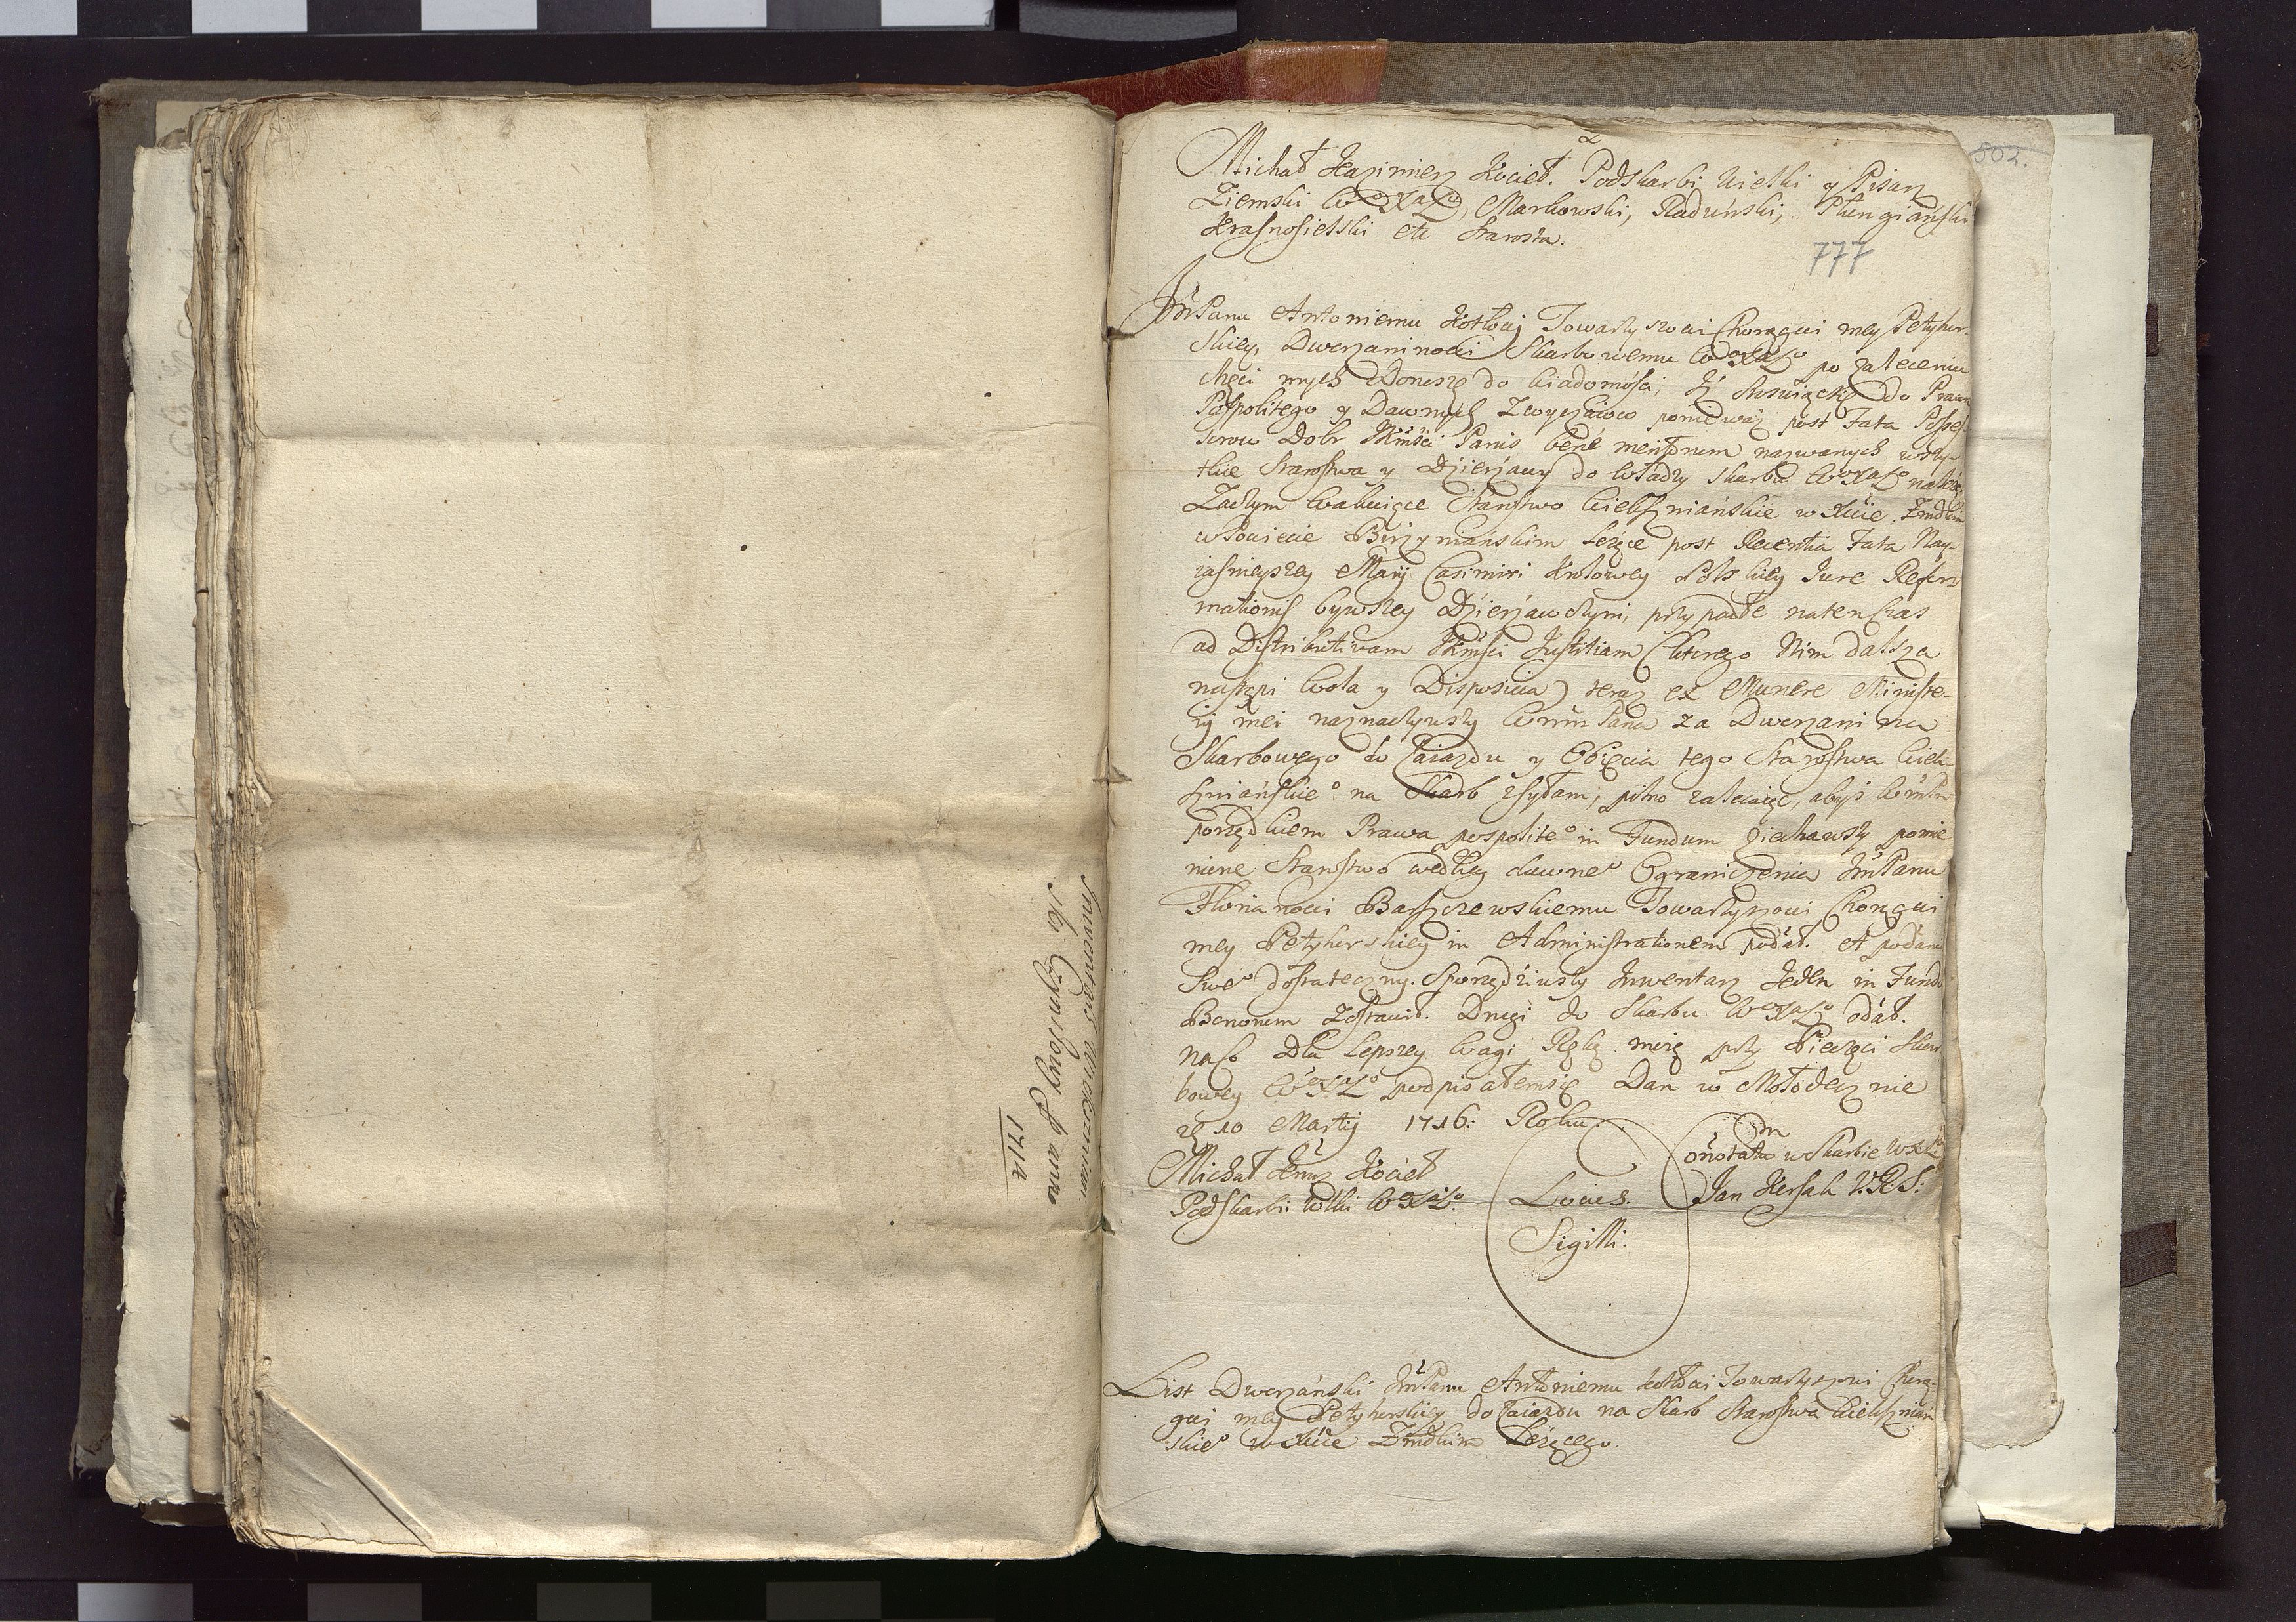 Inwentarz Wiekszniań:
S. o. Czynszowy d anno
1712
502.
Michał Kazimierz Kocieł. Podskarbi Wielki y Pisarz
Ziemski WoXaLo, Markowski, Raduński, Płungiański
Krasnosielski etc Starosta.
777
JmPanu Antoniemu Kotłowi Towarzyszowi Chorągwi mey Petyhor-
skiey, Dworzaninowi Skarbowemu WoXaLo po zaleceniu
chęci mych Donoszę do wiadomości, Iż stosuiąc się do Prawa
Pospolitego y Dawnych Zwyczaiow poniewaz post Fata Posses-
sorow Dobr JKmści Panis bene meritorum nazwanych wszy-
tkie Starostwa y Dzierżawy do władzy Skarbu WoXaLo należą
Zaczym Wakuiące Starostwo Wiekszniańskie w Xcie Żmudzkim
w Powiecie Birżyniańskim leżące post Recentia Fata Nay-
iaśnieyszey Maryi Casimiri Krolowey Polskiey Jure Refor
mationis bywszey Dzierżawczyni, przypadłe natenczas
ad Distributivam JKmści Justitiam (ktorego Nim dalsza
nastąpi Wola y Disposicia) teraz ex Munere Ministe-
rij mei naznaczywszy WmmPana za Dworzanina
Skarbowego do Zaiazdu y Obięcia tego Starostwa Wiek-
szniańskieo na Skarb zsyłam, pilno zalecaiąc, abyś WmPn
porządkiem Prawa pospoliteo in Fundum ziechawszy pomie
nione Starostwo według dawneo Ograniczenia JmPanu
Florianowi Barszczewskiemu Towarzyszowi Chorągwi
mey Petyhorskiey in Administrationem podał. A podania
Sweo dostateczny Sporządziwszy Inwentarz Jeden in Fundo
Bonorum Zostawił. Drugi do Skarbu WoXaLo odał.
na co dla lepszey Wagi Ręką moią przy Pieczęci Skar
bowey WoXaLo podpisałemsię Dan w Mołodecznie
10 Martij 1716: Roku
Michał Kmrz Kociel
Podskarbi Wlki WoXaLo
Locus
Sigilli:
Connotatio w Skarbie WXL:
Jan Kersak
List Dworzański JmPanu Antoniemu Kotłowi Towarzyszowi Chorą-
gwi mey Petyhorskiey do Zaiazdu na Skarb Starostwa Wiekszniań
skieo w Xcie Żmudzkim Leżącego.